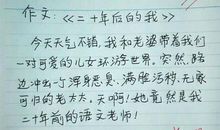 作文:《二十年后的我》
今天天气不错,我和老婆带着我们
一对可爱的儿女环游世界,突然,路
边冲出一个浑身恶臭、满脸污秽、无家
可归的老太太。天啊!她竟然是我
二十年前的语文老师!